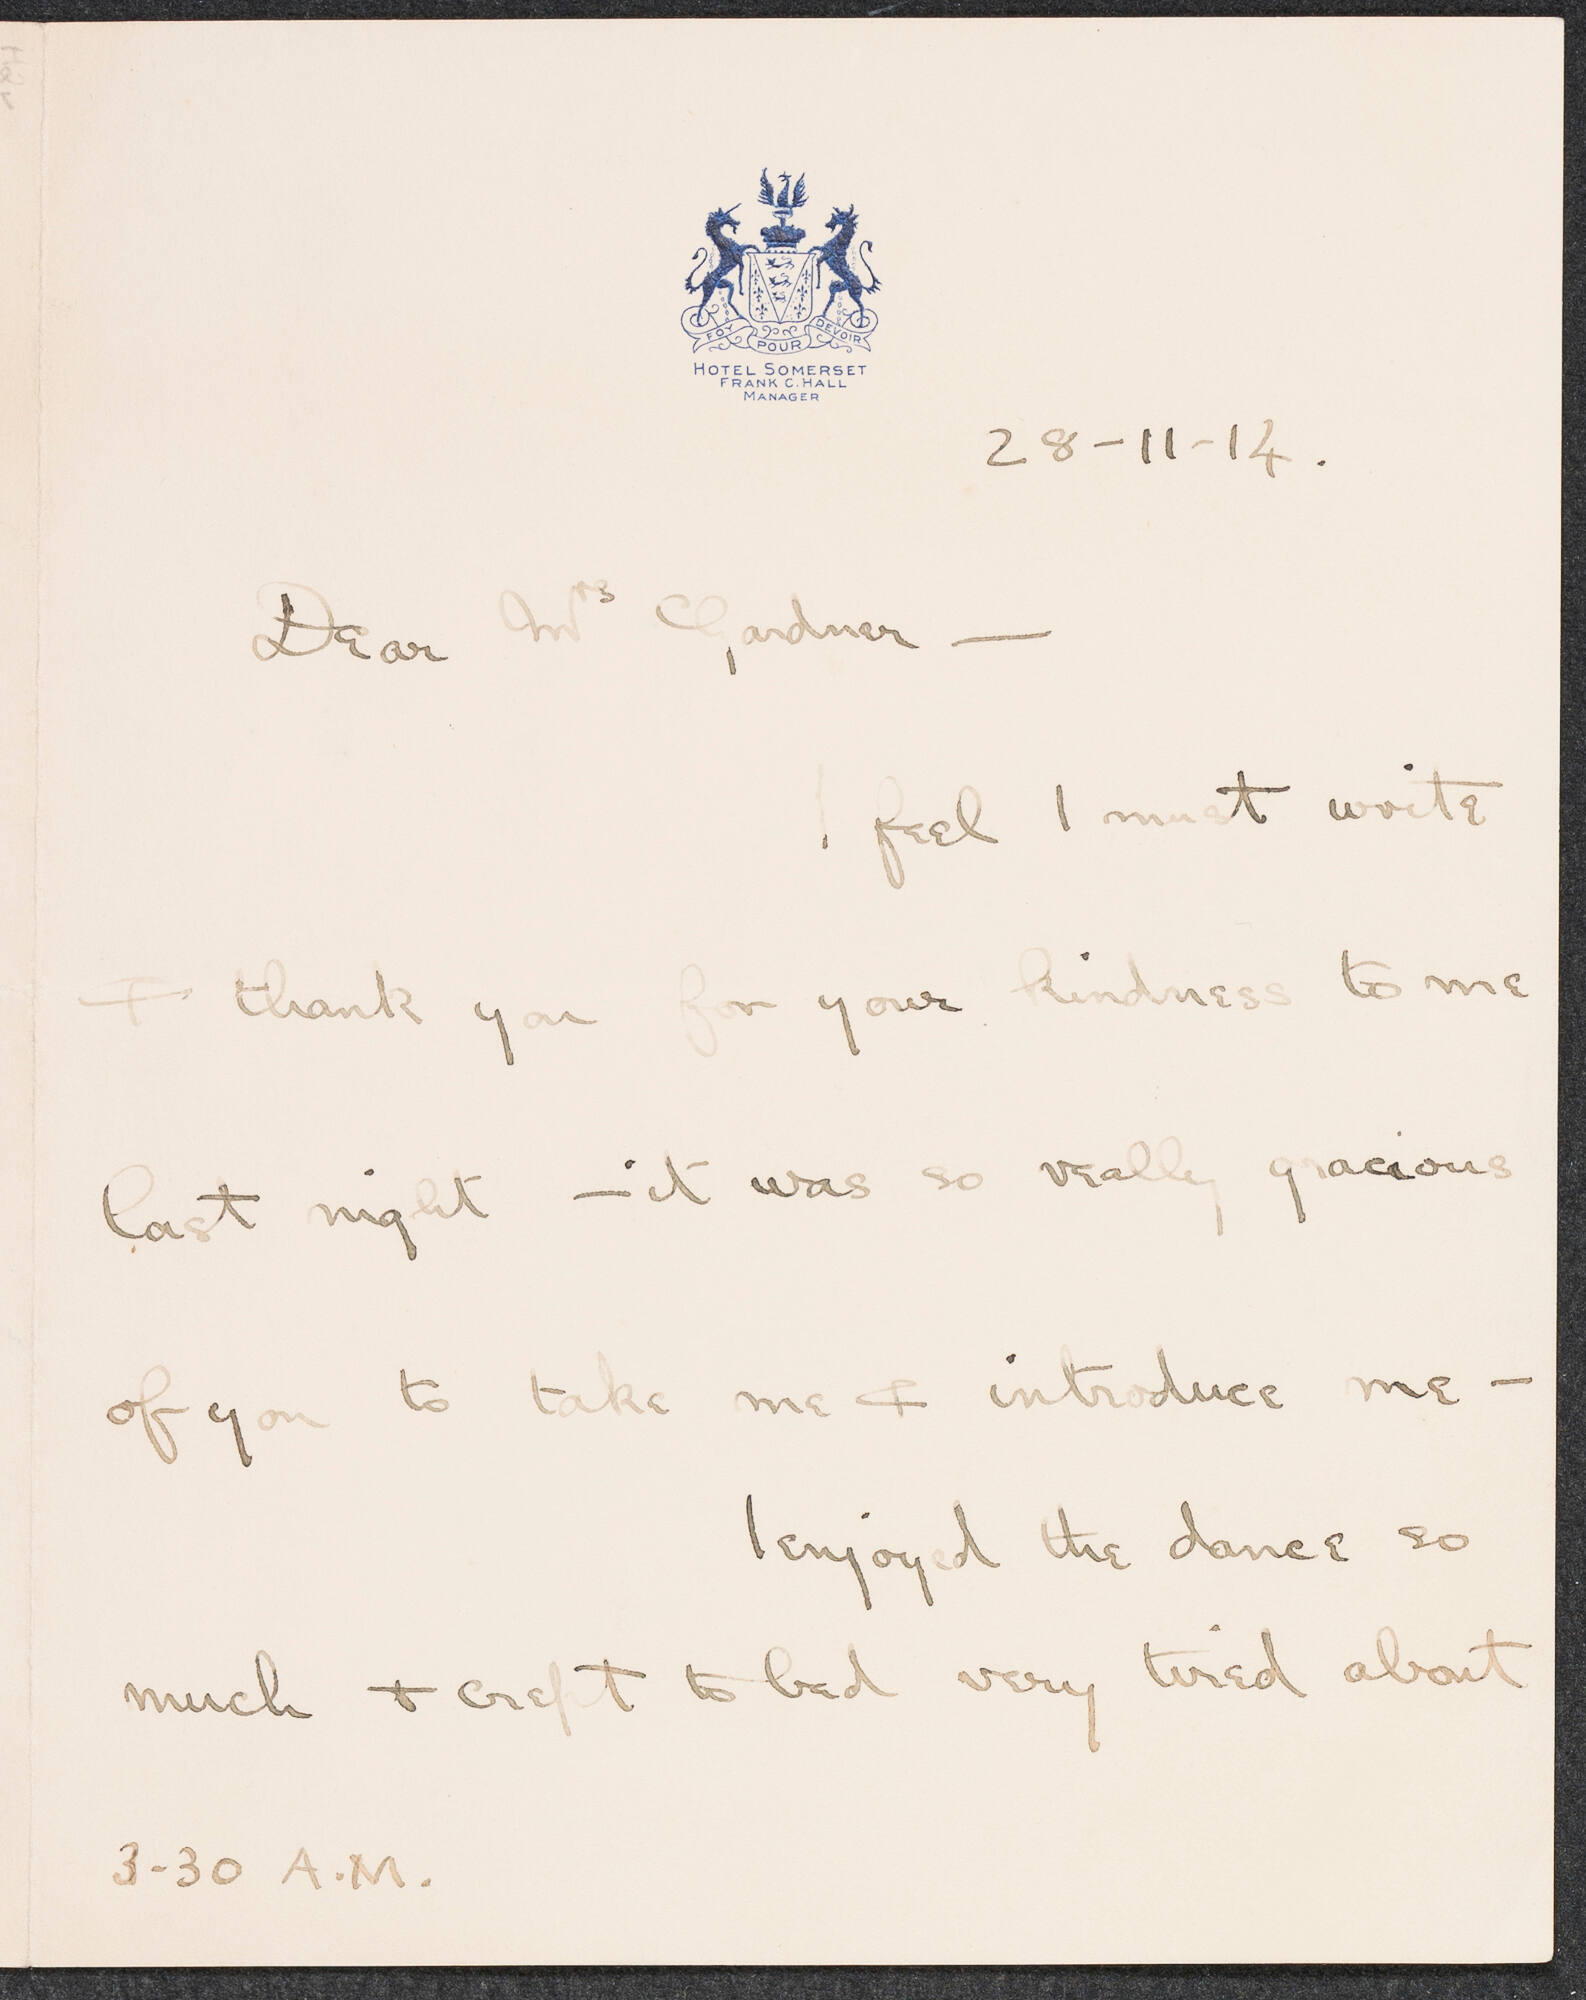 FOY POUR DEVOIR
HOTEL SOMERSET
FRANK C. HALL
MANAGER
28-11-14.
Dear Mrs Gardner —
I feel I must write
& thank you for your kindness to me
last night — it was so really gracious
of you to take me & introduce me —
I enjoyed the dance so
much & crept to bed very tired about
3-30 A.M.